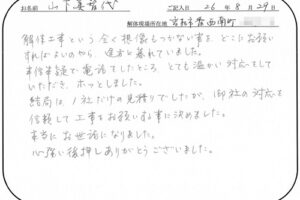 お名前 山下美智代 ご記入日 26年8月29日
解体現場所在地 宮崎市香西南町
解体工事という全く想像もつかない事を、どこにお願い
すればよいのやら 途方に暮れていました。
半信半疑で電話してみたところ とても温かい対応をして
いただき、ホッとしました。
結局は1社だけの見積りでしたが、御社の対応を
信頼して工事をお願いする事に決めました。
本当にお世話になりました。
心強い後押しありがとうございました。